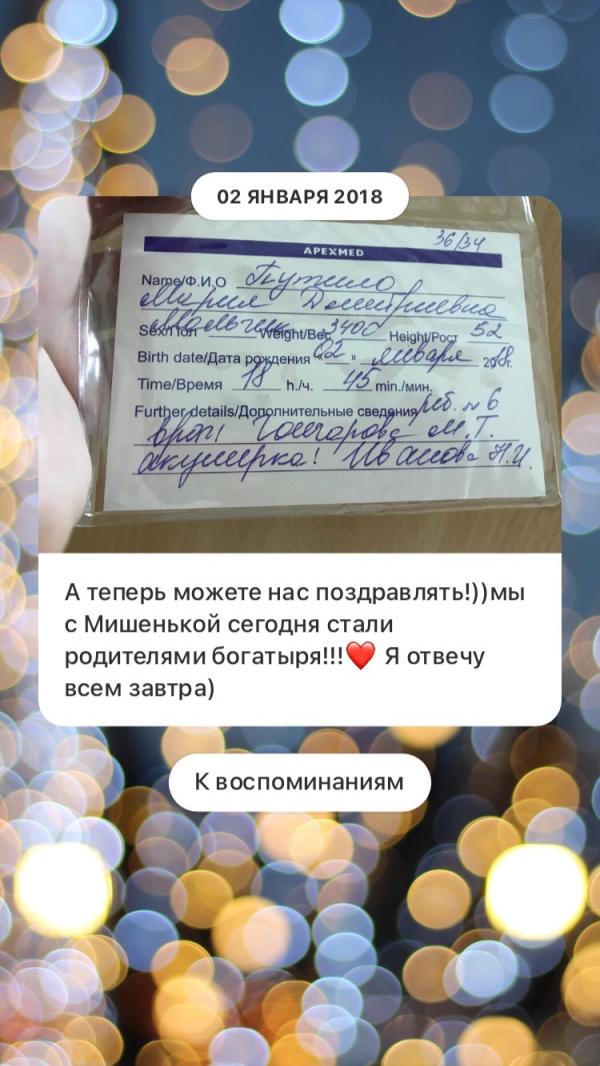 02 ЯНВАРЯ 2018
36/34
APEXMED
Name/Ф.И.О Путило
Мария Дмитриевна
Sex/Пол Мальчик Weight/Вес 3400 Height/Рост 52
Birth date/Дата рождения 02 " января 2018г.
Time/Время 18 h./ч. 45 min./мин.
Further details/Дополнительные сведения реб. № 6
врач: Гончарова М.Т.
акушерка: Иванова Н.И.
А теперь можете нас поздравлять!))мы
с Мишенькой сегодня стали
родителями богатыря!!!❤️ Я отвечу
всем завтра)
К воспоминаниям